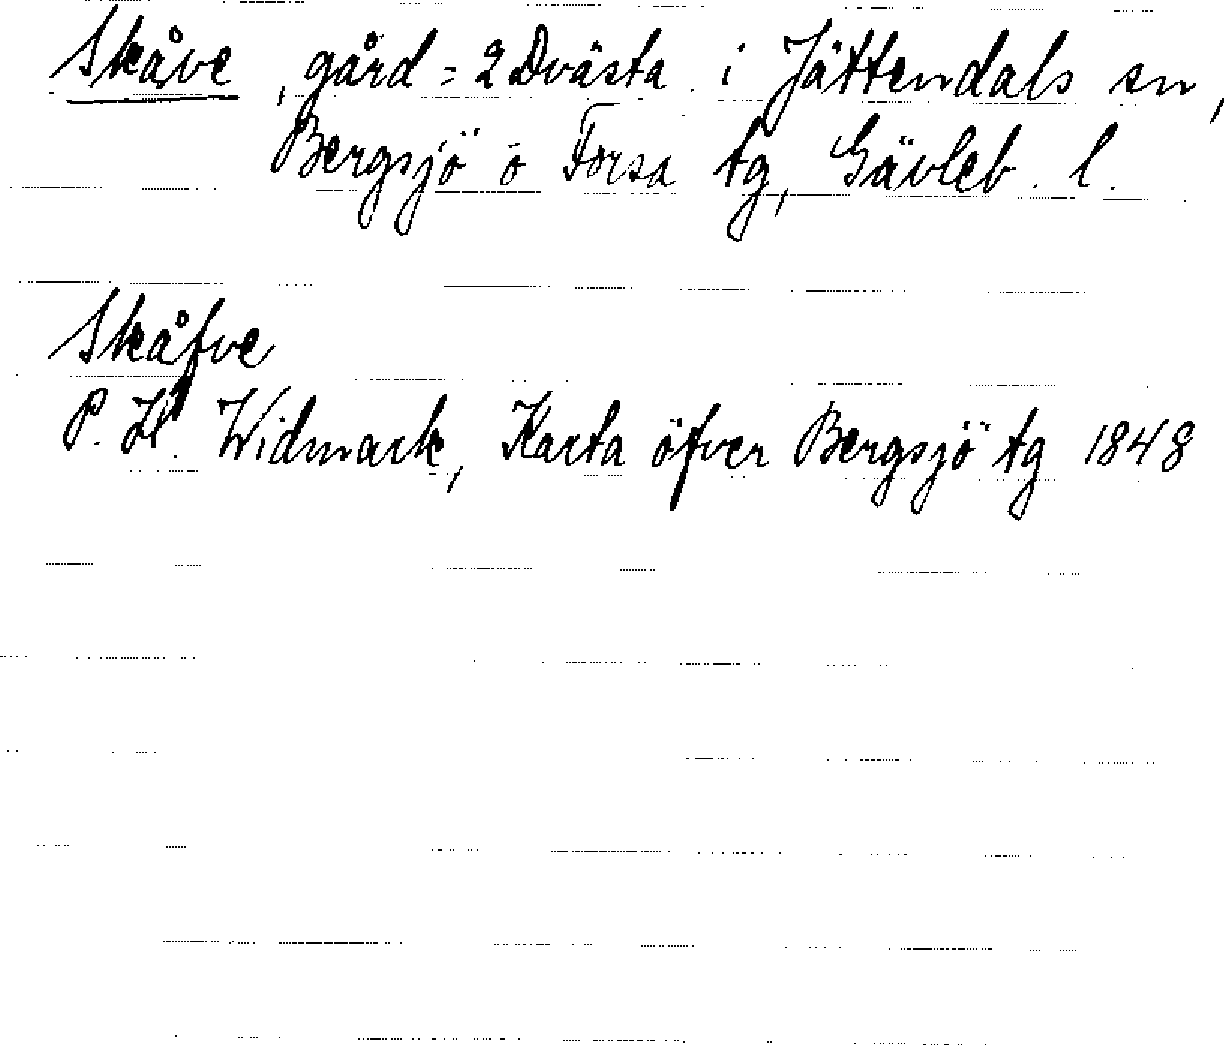 Skåve, gård = 2 Dvästa i Jättendals sn,
Bergsjö o Forsa tg, Gävleb. l.
Skåfve
P. H. Widmark, Karta öfver Bergsjö tg 1848